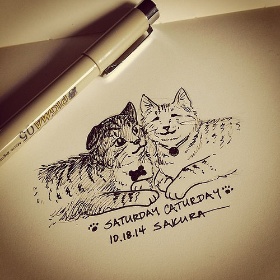 SATURDAY CATURDAY
10.18.14 SAKURA